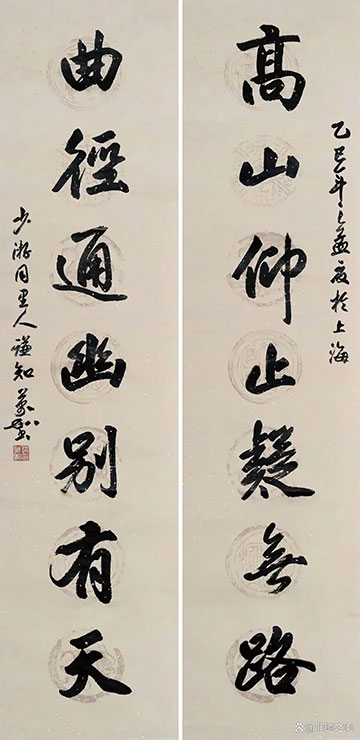 乙巳年之孟夏於上海
髙山仰止疑無路
曲徑通幽別有天
少游同里人謙知